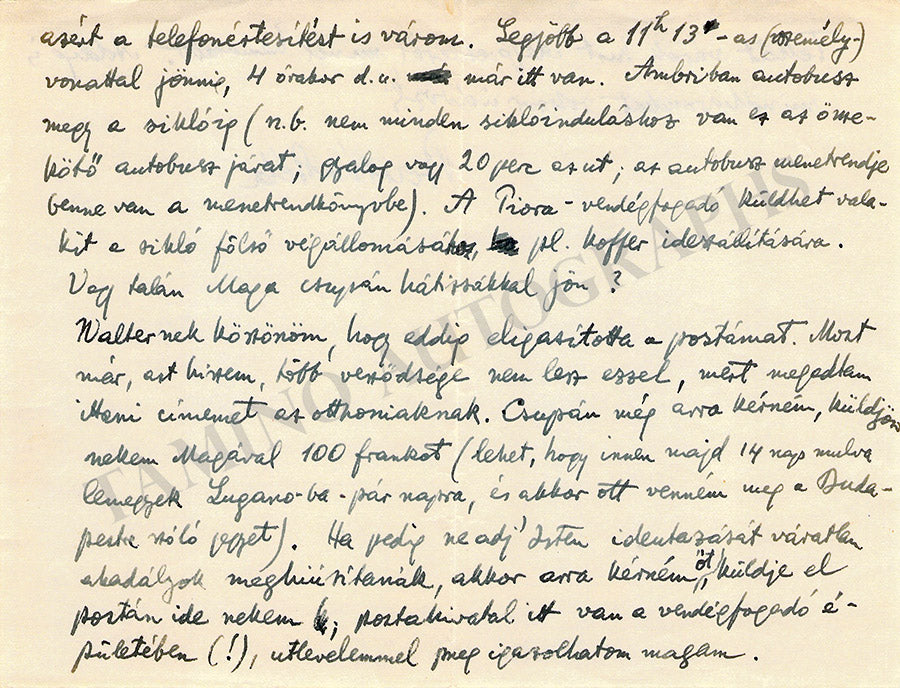 azért a telefonértesítést is várom. Legjobb a 11h 13-as (személy-)
vonattal jönnie, 4 órakor d.u. már itt van. Ambriban autobusz
megy a siklóig (n.b. nem minden siklóinduláshoz van ez az össze-
kötő autobusz járat; gyalog vagy 20 perc az út; az autobusz menetrendje
benne van a menetrendkönyvbe). A Piora-vendégfogadó küldhet vala-
kit a sikló fölső végállomásához, pl. koffer ideszállítására.
Vagy talán Maga csupán hátizsákkal jön?
Walternek köszönöm, hogy eddig eligasította a postámat. Most
már, azt hiszem, több vesződsége nem lesz ezzel, mert megadtam
itteni címemet az otthoniaknak. Csupán még arra kérném, küldjön
nekem Magával 100 frankot (lehet, hogy innen majd 14 nap mulva
lemegyek Lugano-ba - pár napra, és akkor ott venném meg a Buda-
pestre szóló jegyet). Ha pedig ne adj' Isten ideutazását váratlan
akadályok meghiúsítanák, akkor arra kérném őt, küldje el
postán ide nekem; postahivatal itt van a vendégfogadó é-
pületében (!), utlevelemmel meg igazolhatom magam.
TAMINO AUTOGRAPHS